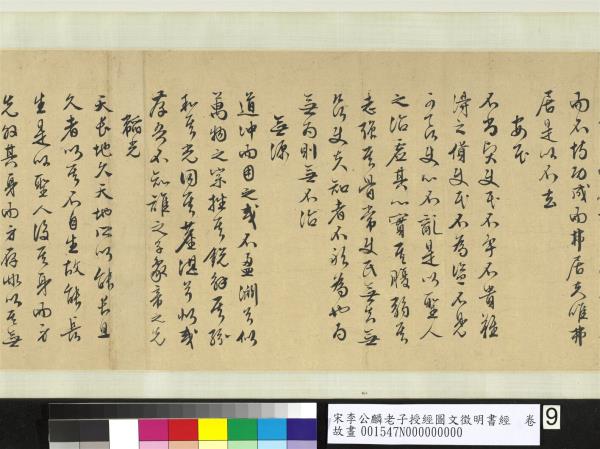 而不恃功成而弗居夫唯弗
居是以不去
安民
不尚賢使民不爭不貴難
得之貨使民不為盜不見
可欲使心不亂是以聖人
之治虛其心實其腹弱其
志強其骨常使民無知無
欲使夫知者不敢為也為
無為則無不治
無源
道沖而用之或不盈淵兮似
萬物之宗挫其銳解其紛
和其光同其塵湛兮似或
存吾不知誰之子象帝之先
韜光
天長地久天地所以能長且
久者以其不自生故能長
生是以聖人後其身而身
先外其身而身存非以其無
宋李公麟老子授經圖文徵明書經 卷
故畫 001547N000000000
9